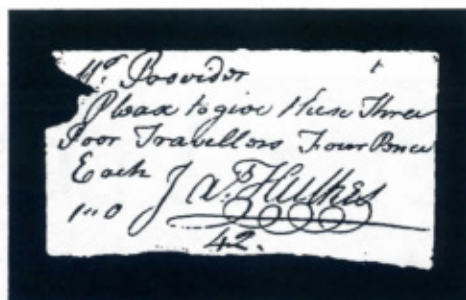 Mr. Provider
Pleax to give these Three
Poor Travellors Four Pence
Each
Hulkes
1"0
42.